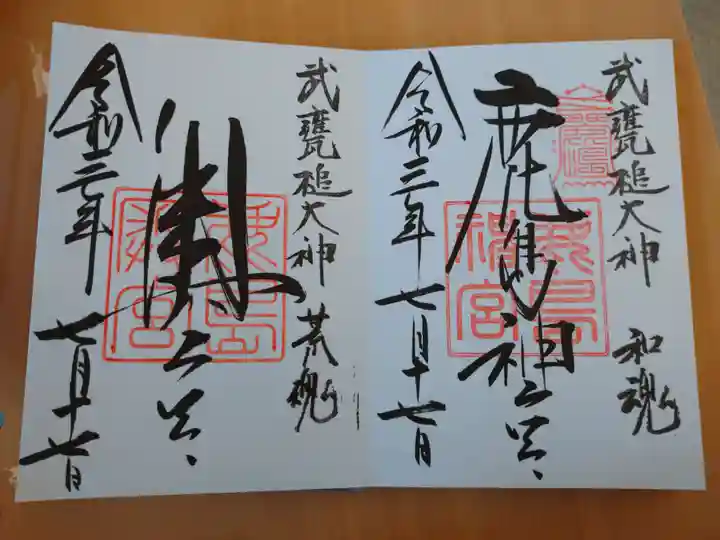 武甕槌大神　和魂
鹿島神宮
鹿島神宮
令和三年七月十七日
武甕槌大神　荒魂
奥宮
令和三年七月十七日